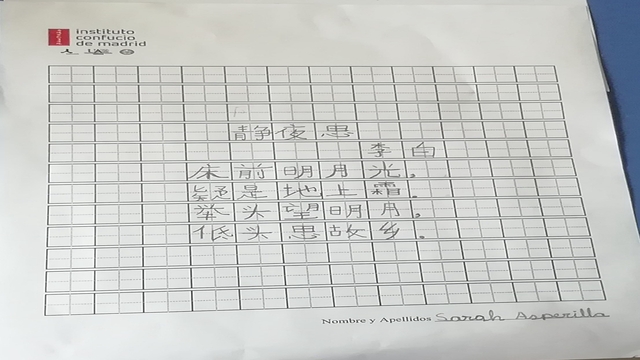 instituto
confucio
de madrid
静夜思
李白
床前明月光。
疑是地上霜。
举头望明月。
低头思故乡。
Nombre y Apellidos Sarah Asperilla